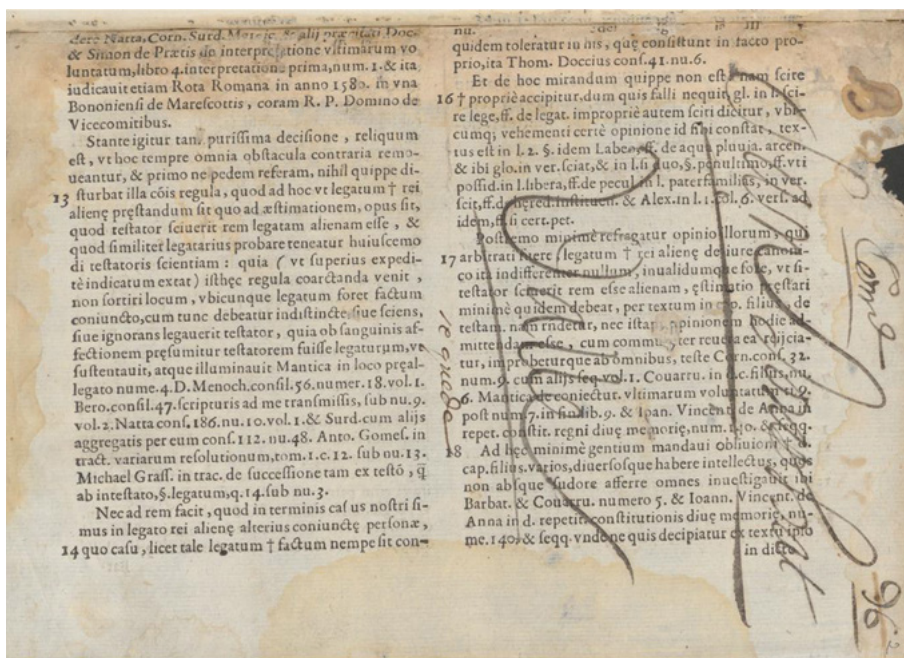 dere Natta, Corn. Surd. & alij præcitati Doc.
& Simon de Prætis de interpretatione vltimarum vo
luntatum, libro 4. interpretatione prima, num. 1. & ita
iudicauit etiam Rota Romana in anno 1580. in vna
Bononiensi de Marescottis, coram R. P. Domino de
Vicecomitibus.
Stante igitur tan. purissima decisione, reliquum
est, vt hoc tempre omnia obstacula contraria remo-
ueantur, & primo ne pedem referam, nihil quippe di-
13 sturbat illa cõis regula, quod ad hoc vt legatum † rei
alienę pręstandum sit quo ad æstimationem, opus sit,
quod testator sciuerit rem legatam alienam esse, &
quod similiter legatarius probare teneatur huiuscemo
di testatoris scientiam: quia (vt superius expedi-
tè indicatum extat) isthęc regula coarctanda venit,
non sortiri locum, vbicunque legatum foret factum
coniuncto, cum tunc debeatur indistinctè, siue sciens,
siue ignorans legauerit testator, quia ob sanguinis af-
fectionem pręsumitur testatorem fuisse legaturum, vt
sustentauit, atque illuminauit Mantica in loco pręal-
legato nume. 4. D. Menoch. consil. 56. numer. 18. vol. 1.
Bero. consil. 47. scripturis ad me transmissis, sub nu. 9.
vol. 2. Natta cons. 186. nu. 10. vol. 1. & Surd. cum alijs
aggregatis per eum cons. 112. nu. 48. Anto. Gomes. in
tract. variarum resolutionum, tom. 1. c. 12. sub nu. 13.
Michael Grass. in trac. de successione tam ex testõ, q̃
ab intestato, §. legatum, q. 14. sub nu. 3.
Nec ad rem facit, quod in terminis casus nostri si-
mus in legato rei alienę alterius coniunctę personæ,
14 quo casu, licet tale legatum † factum nempe sit con-
nu.
quidem toleratur in his, quę consistunt in facto pro-
prio, ita Thom. Doccius cons. 41. nu. 6.
Et de hoc mirandum quippe non est: nam scire
16 † propriè accipitur, dum quis falli nequit, gl. in l. sci-
re lege, ff. de legat. impropriè autem sciri dicitur, vbi-
cumq; vehementi certè opinione id sibi constat, tex-
tus est in l. 2. §. idem Labeo, ff. de aqua pluuia. arcen.
& ibi glo. in ver. sciat, & in l. si duo, §. penultimo, ff. vti
possid. in l. libera, ff. de pecul. in l. paterfamilias, in ver.
scit, ff. d. hęred. instituen. & Alex. in l. 1. col. 6. vers. ad
idem, ff. si cert. pet.
Postremo minimè refragatur opinio illorum, qui
17 arbitrati fuere legatum † rei alienę de iure canoni-
co ita indifferenter nullum, inualidumque fore, vt si-
testator sciuerit rem esse alienam, ęstimatio pręstari
minimè quidem debeat, per textum in cap. filius, de
testam. nam rñdetur, nec istam opinionem hodie ad-
mittendam esse, cum communiter reuera ea reijcia-
tur, improbeturque ab omnibus, teste Corn. cons. 32.
num. 9. cum alijs seq. vol. 1. Couarru. in d. c. filius, nu.
6. Mantica de coniectur. vltimarum voluntatum ti. 9.
post num. 7. in fin. lib. 9. & Ioan. Vincent. de Anna in
repet. constit. regni diuę memorię, num. 140. & seqq.
18 Ad hęc minimè gentium mandaui obliuioni † d.
cap. filius, varios, diuersosque habere intellectus, quos
non absque sudore afferre omnes inuestigauit ibi
Barbat. & Couarru. numero 5. & Ioann. Vincent. de
Anna in d. repetit. constitutionis diuę memorię, nu-
me. 140. & seqq. vnde ne quis decipiatur ex textu ipso
in dicto
96